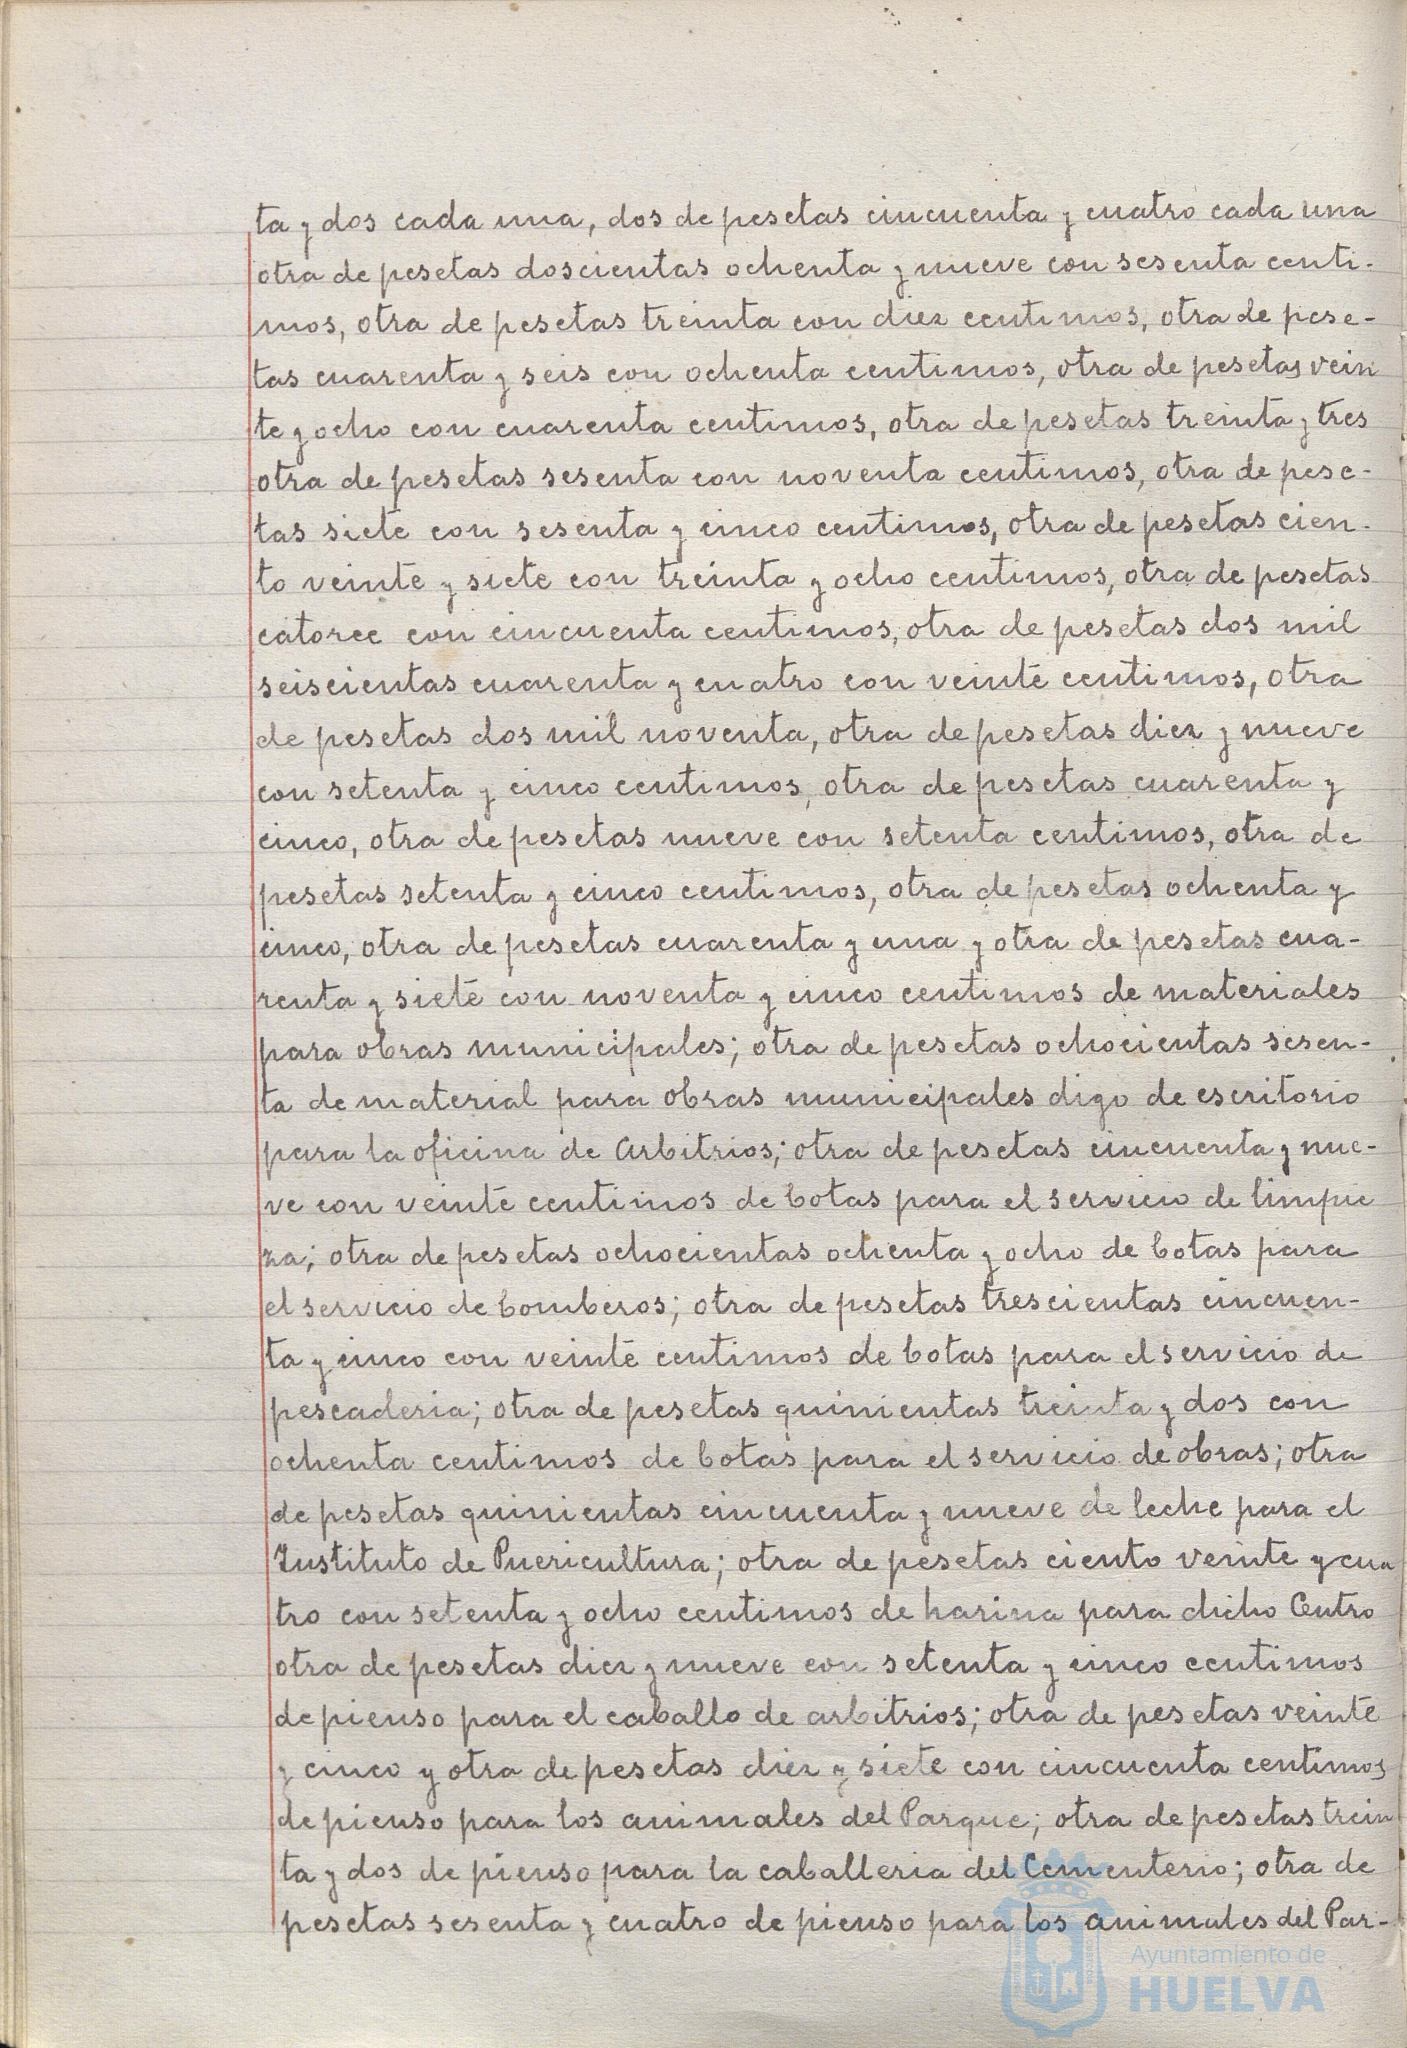 ta y dos cada una, dos de pesetas cincuenta y cuatro cada una
otra de pesetas doscientas ochenta y nueve con sesenta centi-
mos, otra de pesetas treinta con diez centimos, otra de pese-
tas cuarenta y seis con ochenta centimos, otra de pesetas vein
te y ocho con cuarenta centimos, otra de pesetas treinta y tres
otra de pesetas sesenta con noventa centimos, otra de pese-
tas siete con sesenta y cinco centimos, otra de pesetas cien-
to veinte y siete con treinta y ocho centimos, otra de pesetas
catorce con cincuenta centimos, otra de pesetas dos mil
seiscientas cuarenta y cuatro con veinte centimos, otra
de pesetas dos mil noventa, otra de pesetas diez y nueve
con setenta y cinco centimos, otra de pesetas cuarenta y
cinco, otra de pesetas nueve con setenta centimos, otra de
pesetas setenta y cinco centimos, otra de pesetas ochenta y
cinco, otra de pesetas cuarenta y una y otra de pesetas cua-
renta y siete con noventa y cinco centimos de materiales
para obras municipales; otra de pesetas ochocientas sesen-
ta de material para obras municipales digo de escritorio
para la oficina de Arbitrios; otra de pesetas cincuenta y nue-
ve con veinte centimos de botas para el servicio de limpie
za; otra de pesetas ochocientas ochenta y ocho de botas para
el servicio de bomberos; otra de pesetas trescientas cincuen-
ta y cinco con veinte centimos de botas para el servicio de
pescaderia; otra de pesetas quinientas treinta y dos con
ochenta centimos de botas para el servicio de obras; otra
de pesetas quinientas cincuenta y nueve de leche para el
Instituto de Puericultura; otra de pesetas ciento veinte y cua
tro con setenta y ocho centimos de harina para dicho Centro
otra de pesetas diez y nueve con setenta y cinco centimos
de pienso para el caballo de arbitrios; otra de pesetas veinte
y cinco y otra de pesetas diez y siete con cincuenta centimos
de pienso para los animales del Parque; otra de pesetas trein
ta y dos de pienso para la caballeria del Cementerio; otra de
pesetas sesenta y cuatro de pienso para los animales del Par-
Ayuntamiento de
HUELVA